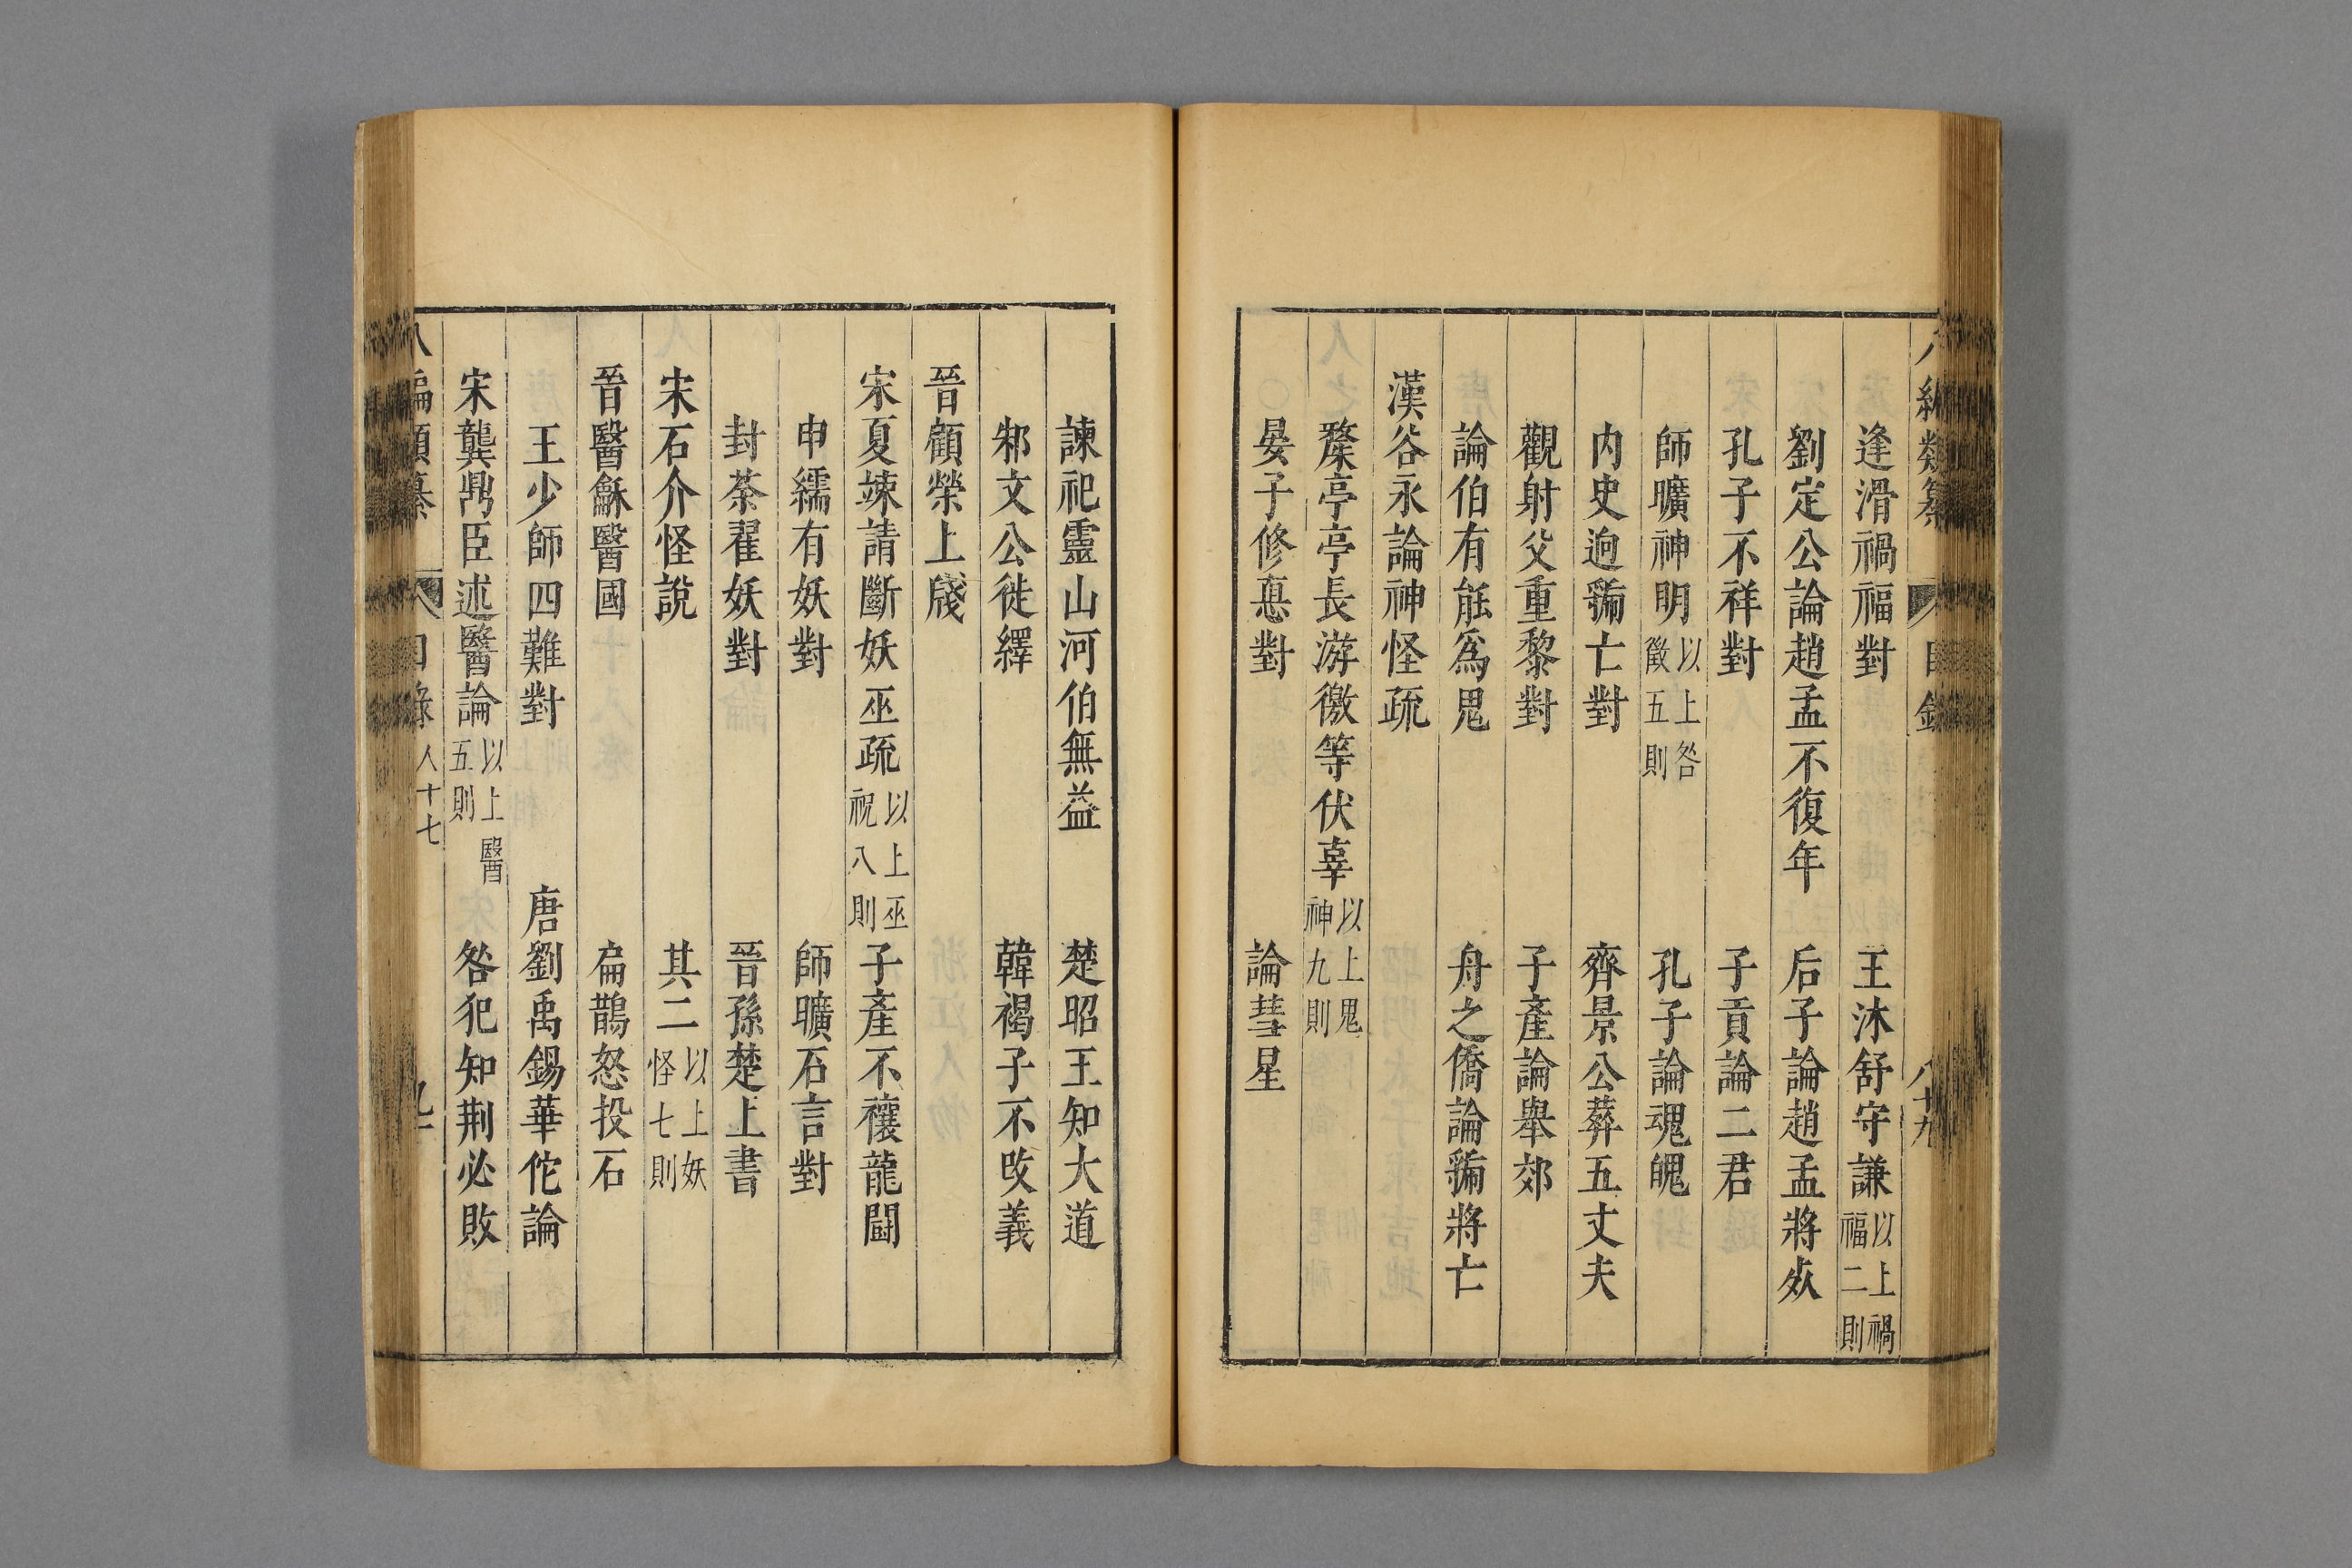 八編類纂 目錄 八十九
逢滑禍福對 王沐舒守謙 以上禍福二則
劉定公論趙孟不復年 后子論趙孟將歿
孔子不祥對 子貢論二君
師曠神明 以上咎徵五則 孔子論魂魄
内史過虢亡對 齊景公葬五丈夫
觀射父重黎對 子產論舉郊
論伯有能爲鬼 舟之僑論虢將亡
漢谷永論神怪疏
斄亭亭長游徼等伏辜 以上鬼神九則
晏子修悳對 論彗星
諫祀靈山河伯無益 楚昭王知大道
邾文公徙繹 韓褐子不攺義
晉顧榮上牋
宋夏竦請斷妖巫疏 以上巫祝八則 子產不禳龍鬬
申繻有妖對 師曠石言對
封荼翟妖對 晉孫楚上書
宋石介怪說 其二 以上妖怪七則
晉醫龢醫國 扁鵲怒投石
王少師四難對 唐劉禹錫華佗論
宋龔鼎臣述醫論 以上醫五則 咎犯知荆必敗
八編類纂 目錄 人十七 九一